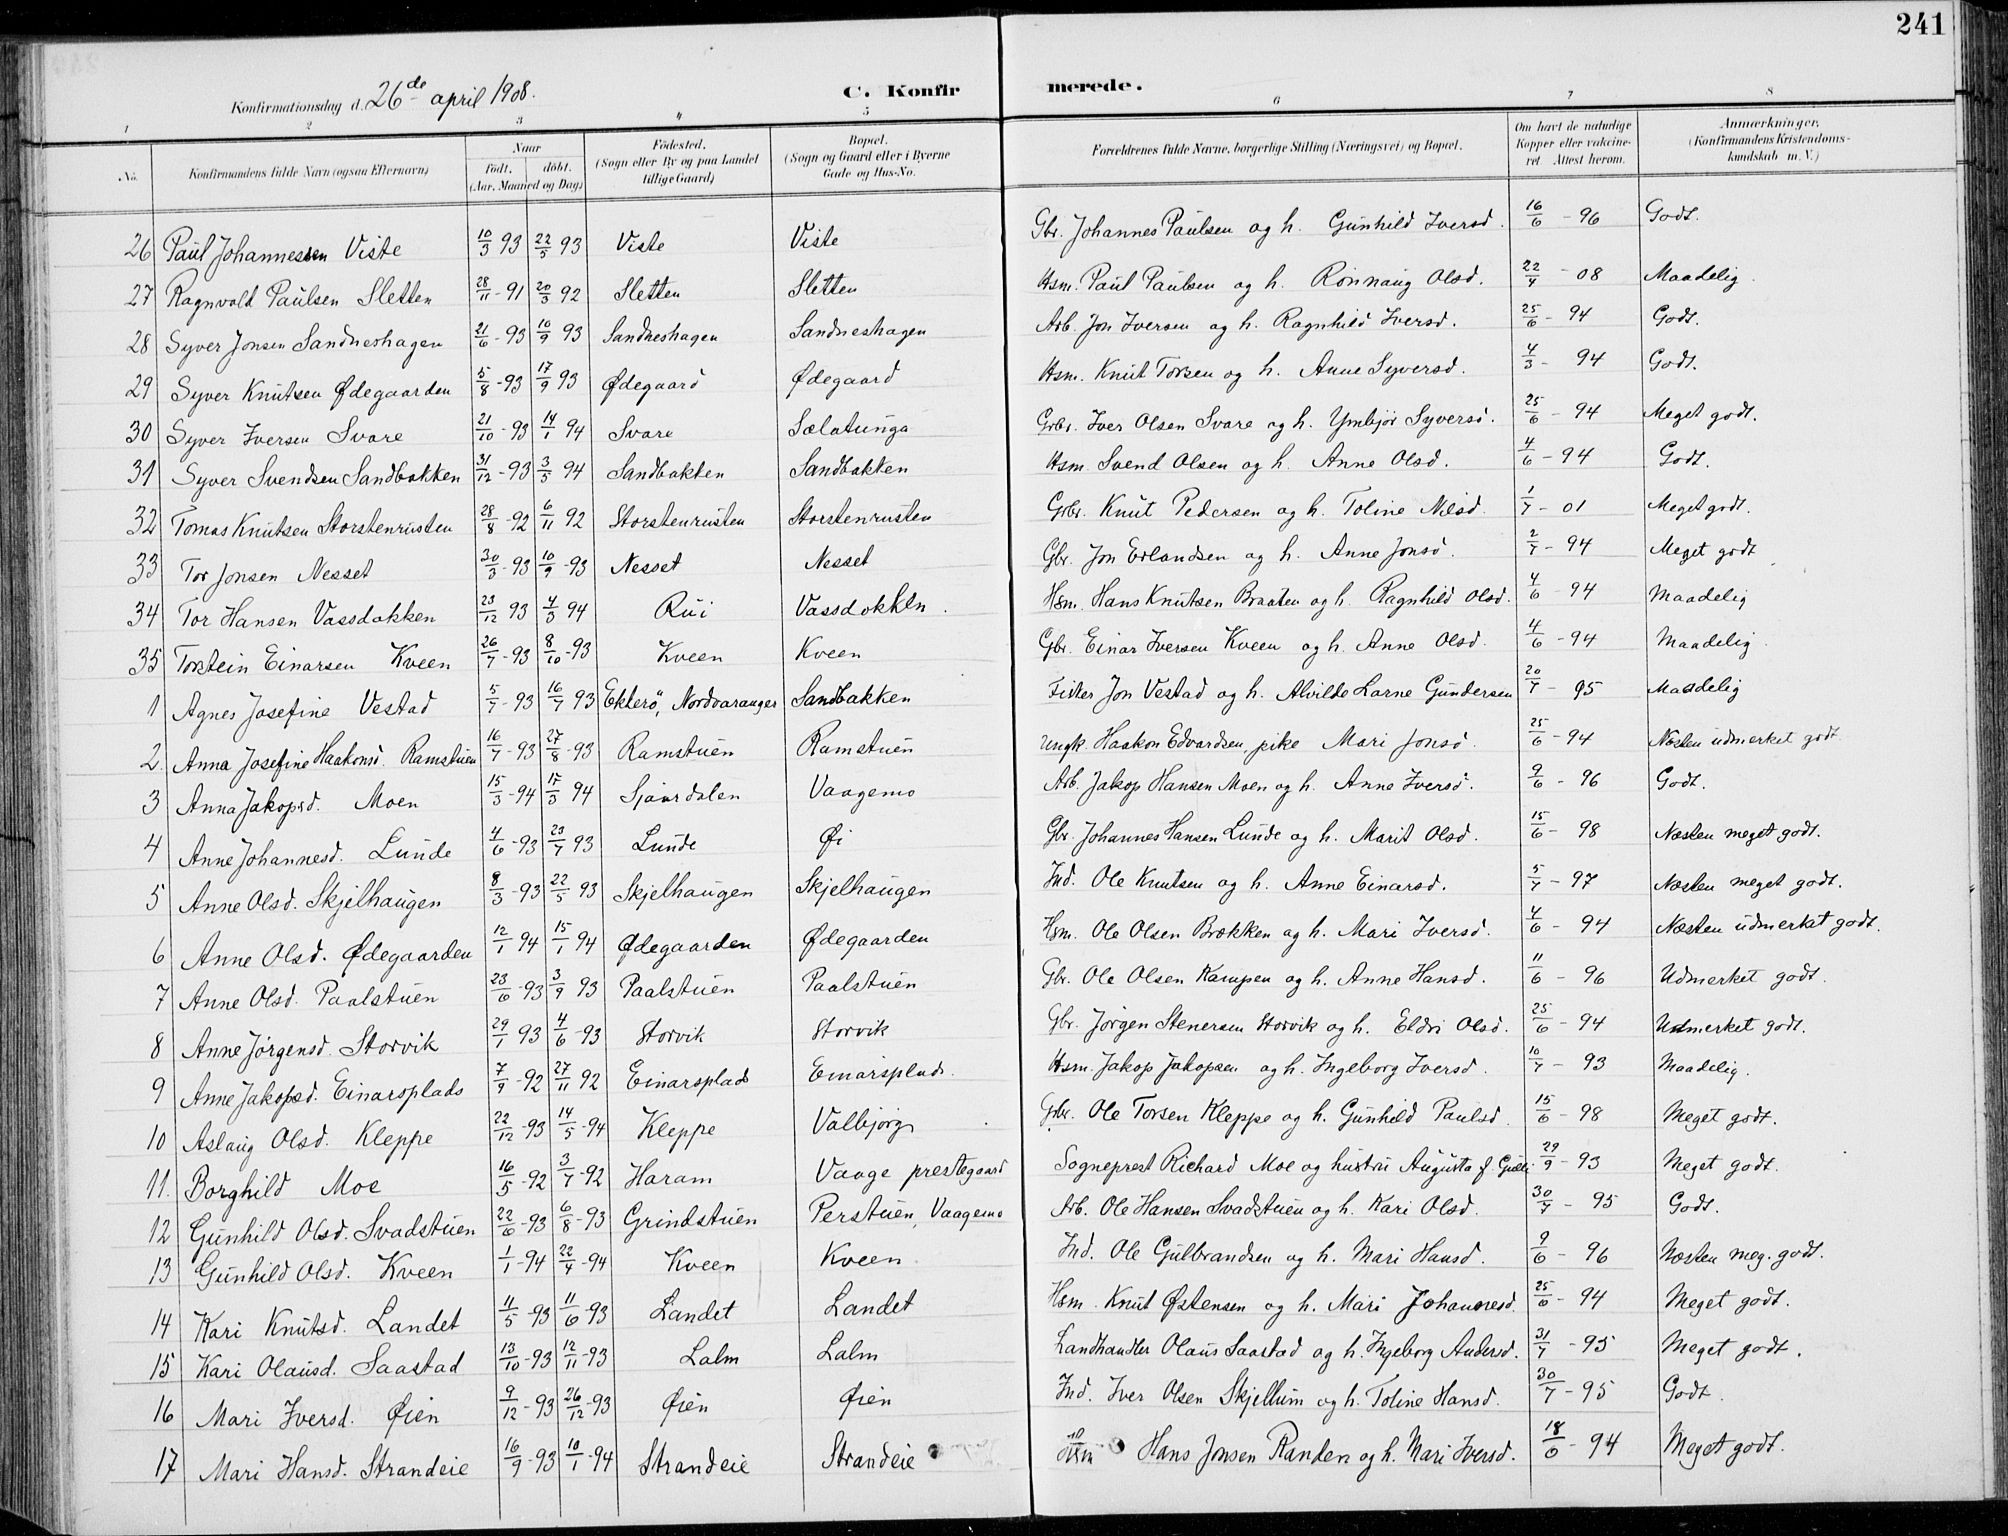 241
Konfirmationsdag d. 26de april 1908.
C. Konfirmerede.
1 2 3 4 5 6 7 8
No. Konfirmandens fulde Navn (ogsaa Efternavn) Naar født. døbt. (Aar, Maaned og Dag) Fødested. (Sogn eller By og paa Landet tillige Gaard) Bopæl. (Sogn og Gaard eller i Byerne Gade og Hus-No. Forældrenes fulde Navne, borgerlige Stilling (Næringsvei) og Bopæl. Om havt de naturlige Kopper eller vakcineret. Attest herom. Anmærkninger. (Konfirmandens Kristendomskundskab m. V.)
26 Paul Johannessen Viste 10/3 93 22/5 93 Viste Viste Gbr. Johannes Paulsen og h. Gunhild Iversd. 16/6 - 96 Godt.
27 Ragnvald Paulsen Sletten 28/11 - 91 20/3 92 Sletten Sletten Hsm. Paul Paulsen og h. Rønnaug Olsd. 22/4 - 08 Maadelig
28 Syver Jonsen Sandneshagen 21/6 - 93 10/9 93 Sandneshagen Sandneshagen Arb. Jon Iversen og h. Ragnhild Iversd. 25/6 - 94 Godt.
29 Syver Knutsen Ødegaarden 5/8 - 93 17/9 93 Ødegaard Ødegaard Hsm. Knut Torsen og h. Anne Syversd. 4/3 - 94 Godt.
30 Syver Iversen Svare 21/10 - 93 14/1 94 Svare Sælatunga Grbr. Iver Olsen Svare og h. Ymbjør Syversd. 25/6 - 94 Meget godt.
31 Syver Svendsen Sandbakken 31/12 - 93 3/5 94 Sandbakken Sandbakken Hsm. Svend Olsen og h. Anne Olsd. 4/6 - 94 Godt.
32 Tomas Knutsen Storstenrusten 28/8 - 92 6/11 92 Storstenrusten Storstenrusten Grbr. Knut Pedersen og h. Toline Nilsd. 1/7 - 01 Meget godt.
33 Tor Jonsen Nesset 30/3 - 93 10/9 - 93 Nesset Nesset Gbr. Jon Erlandsen og h. Anne Jonsd. 2/7 - 94 Meget godt
34 Tor Hansen Vassdokken 23/12 93 4/3 94 Rui Vassdokken. Hsm. Hans Knutsen Braaten og h. Ragnhild Olsd. 4/6 - 94 Maadelig
35 Torstein Einarsen Kveen 26/7 - 93 8/10 - 93 Kveen Kveen Gbr. Einar Iversen Kveen og h. Anne Olsd. 4/6 - 94 Maadelig
1 Agnes Josefine Vestad 5/7 - 93 16/7 93 Ekkerø, Nordvaranger Sandbakken Fisker Jon Vestad og h. Alvilde Larne Gundersen 20/7 - 95 Maadelig
2 Anna Josefine Haakonsd. Ramstuen 16/7 - 93 27/8 - 93 Ramstuen Ramstuen Ungk. Haakon Edvardsen, pike Mari Jonsd. 25/6 - 94 Næsten udmerket godt.
3 Anna Jakopsd. Moen 15/3 - 94 17/3 94 Sjaardalen Vaagemo Arb. Jakop Hansen Moen og h. Anne Iversd. 9/6 - 96 Godt.
4 Anne Johannesd. Lunde 4/6 - 93 23/7 93 Lunde Øi Gbr. Johannes Hansen Lunde og h. Marit Olsd. 15/6 - 98 Næsten meget godt.
5 Anne Olsd. Skjelhaugen 8/3 - 93 22/5 93 Skjelhaugen Skjelhaugen Ind. Ole Knutsen og h. Anne Einarsd. 5/7 - 97 Næsten meget godt.
6 Anne Olsd. Ødegaarden 12/1 94 15/1 94 Ødegaarden Ødegaarden Hsm. Ole Olsen Brekken og h. Mari Iversd. 4/6 - 94 Næsten udmerket godt.
7 Anne Olsd. Paalstuen 23/6 - 93 3/9 93 Paalstuen Paalstuen Gbr. Ole Olsen Kampen og h. Anne Hansd. 11/6 - 96 Udmerket godt.
8 Anne Jørgensd. Storvik 29/1 93 4/6 - 93 Storvik Storvik Gbr. Jørgen Stenersen Storvik og h. Eldri Olsd. 25/6 - 94 Udmerket godt.
9 Anne Jakopsd. Einarsplads 7/9 - 92 27/11 92 Einarsplads Einarsplads. Hsm. Jakop Jakopsen og h. Ingeborg Iversd. 10/7 - 93 Maadelig.
10 Aslaug Olsd. Kleppe 22/12 - 93 14/5 - 94 Kleppe Valbjørg Grbr. Ole Torsen Kleppe og h. Gunhild Paulsd. 15/6 - 98 Meget godt.
11. Borghild Moe 16/5 - 92 3/7 - 92 Haram Vaage prestegaard Sogneprest Richard Moe og hustru Augusta f. 29/9 - 93 Meget godt.
12 Gunhild Olsd. Svadstuen 22/6 - 93 6/8 - 93 Grindstuen Perstuen, Vaagemo Arb. Ole Hansen Svadstuen og h. Kari Olsd. 30/7 - 95 Godt.
13 Gunhild Olsd. Kveen 1/1 - 94 22/4 - 94 Kveen Kveen. Ind. Ole Gulbrandsen og h. Mari Hansd. 9/6 - 96 Næsten meg. godt.
14 Kari Knutsd. Landet 11/5 - 93 11/6 - 93 Landet Landet Hsm. Knut Østensen og h. Mari Johannesd. 25/6 - 94 Meget godt.
15 Kari Olausd. Saastad 13/10 - 93 12/11 - 93 Lalm Lalm Landhandler Olaus Saastad og h. Ingeborg Andersd. 31/7 - 95 Meget godt.
16 Mari Iversd. Øien 9/12 - 93 26/12 - 93 Øien Øien Ind. Iver Olsen Skjellum og h. Toline Hansd. 30/7 - 95 Godt.
17 Mari Hansd. Strandeie 16/9 - 93 10/1 - 94 Strandeie Strandeie Hans Jonsen Randen og h. Mari Iversd. 18/6 - 94 Meget godt.